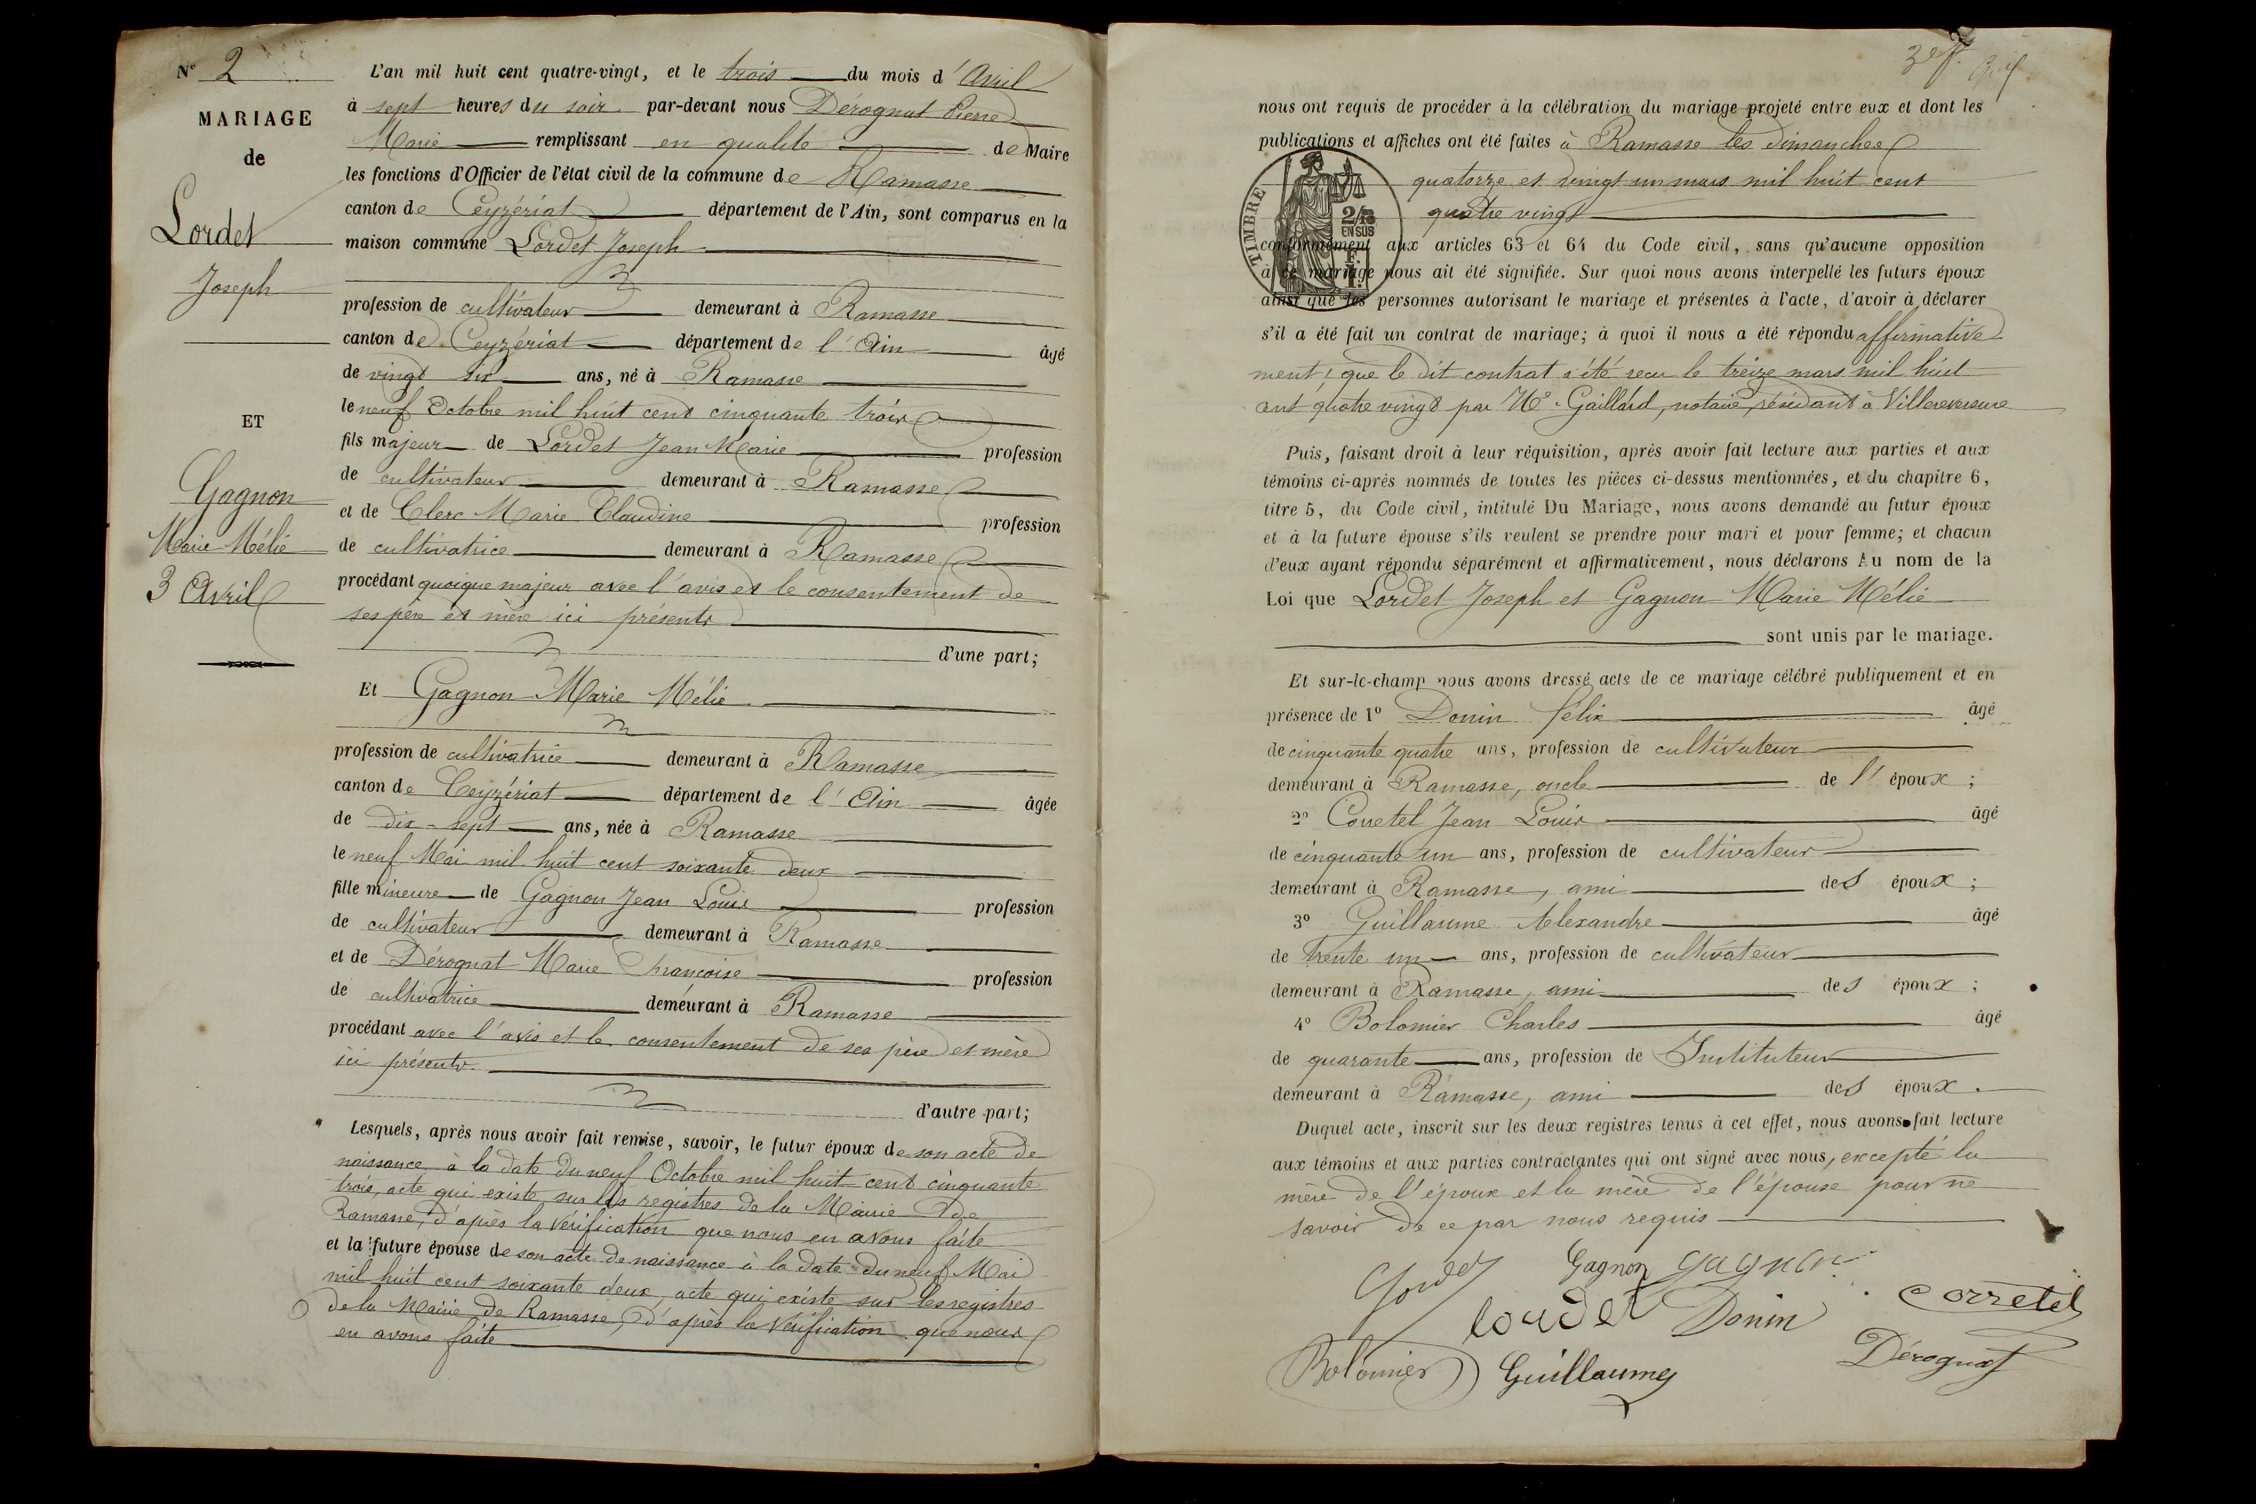 N° 2
MARIAGE
de
Lordet
Joseph
ET
Gagnon
Marie Mélie
3 Avril
L'an mil huit cent quatre-vingt, et le trois du mois d'Avril
à sept heures du soir par-devant nous Dérognat Pierre
Marie remplissant en qualité de Maire
les fonctions d'Officier de l'état civil de la commune de Ramasse
canton de Ceyzériat département de l'Ain, sont comparus en la
maison commune Lordet Joseph
profession de cultivateur demeurant à Ramasse
canton de Ceyzériat département de l'Ain âgé
de vingt six ans, né à Ramasse
le neuf Octobre mil huit cent cinquante trois
fils majeur de Lordet Jean Marie profession
de cultivateur demeurant à Ramasse
et de Clerc Marie Claudine profession
de cultivatrice demeurant à Ramasse
procédant quoique majeur avec l'avis et le consentement de
ses père et mère ici présents
d'une part;
Et Gagnon Marie Mélie
profession de cultivatrice demeurant à Ramasse
canton de Ceyzériat département de l'Ain âgée
de dix-sept ans, née à Ramasse
le neuf Mai mil huit cent soixante deux
fille mineure de Gagnon Jean Louis profession
de cultivateur demeurant à Ramasse
et de Dérognat Marie Françoise profession
de cultivatrice demeurant à Ramasse
procédant avec l'avis et le consentement de ses père et mère
ici présents
d'autre part;
Lesquels, après nous avoir fait remise, savoir, le futur époux de son acte de
naissance à la date du neuf Octobre mil huit cent cinquante
trois, acte qui existe sur les registres de la Mairie de
Ramasse, d'après la vérification que nous en avons faite
et la future épouse de son acte de naissance à la date du neuf Mai
mil huit cent soixante deux, acte qui existe sur les registres
de la Mairie de Ramasse, d'après la vérification que nous
en avons faite
nous ont requis de procéder à la célébration du mariage projeté entre eux et dont les
publications et affiches ont été faites à Ramasse les dimanches
quatorze et vingt un mars mil huit cent
quatre vingt
TIMBRE
2/10
EN SUS
conformément aux articles 63 et 64 du Code civil, sans qu'aucune opposition
à ce mariage nous ait été signifiée. Sur quoi nous avons interpellé les futurs époux
ainsi que les personnes autorisant le mariage et présentes à l'acte, d'avoir à déclarer
s'il a été fait un contrat de mariage; à quoi il nous a été répondu affirmative
ment, que le dit contrat a été reçu le treize mars mil huit
cent quatre vingt par Me Gaillard, notaire, résidant à Villereversure
Puis, faisant droit à leur réquisition, après avoir fait lecture aux parties et aux
témoins ci-après nommés de toutes les pièces ci-dessus mentionnées, et du chapitre 6,
titre 5, du Code civil, intitulé Du Mariage, nous avons demandé au futur époux
et à la future épouse s'ils veulent se prendre pour mari et pour femme; et chacun
d'eux ayant répondu séparément et affirmativement, nous déclarons Au nom de la
Loi que Lordet Joseph et Gagnon Marie Mélie
sont unis par le mariage.
Et sur-le-champ nous avons dressé acte de ce mariage célébré publiquement et en
présence de 1° Donin félix âgé
de cinquante quatre ans, profession de cultivateur
demeurant à Ramasse, oncle de l'époux;
2° Corretel Jean Louis âgé
de cinquante un ans, profession de cultivateur
demeurant à Ramasse, ami des époux;
3° Guillaume Alexandre âgé
de trente un ans, profession de cultivateur
demeurant à Ramasse, ami des époux;
4° Bolomier Charles âgé
de quarante ans, profession de Instituteur
demeurant à Ramasse, ami des époux.
Duquel acte, inscrit sur les deux registres tenus à cet effet, nous avons fait lecture
aux témoins et aux parties contractantes qui ont signé avec nous, excepté la
mère de l'époux et la mère de l'épouse pour ne
savoir de ce par nous requis
Lordet Gagnon gagnon
lordet Donin corretel
Bolomier Guillaume Dérognat